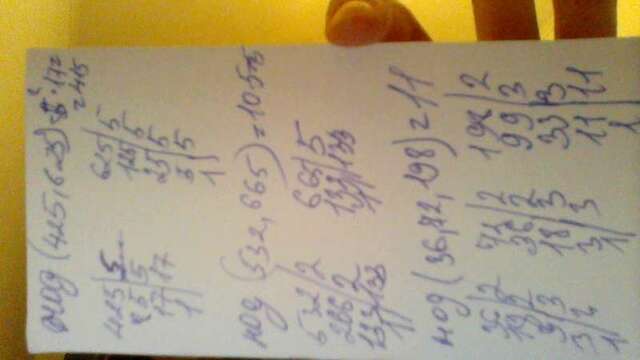 НОД (425, 625)
425|5
85|5
17|17
1|
625|5
125|5
25|5
5|5
1|
НОД (532, 665)
532|2
266|2
133|133
1|
665|5
133|133
1|
НОД (36, 72, 198) = 11
36|2
18|2
9|3
3|3
1|
72|2
36|2
18|3
3|3
1|
198|2
99|3
33|3
11|11
1